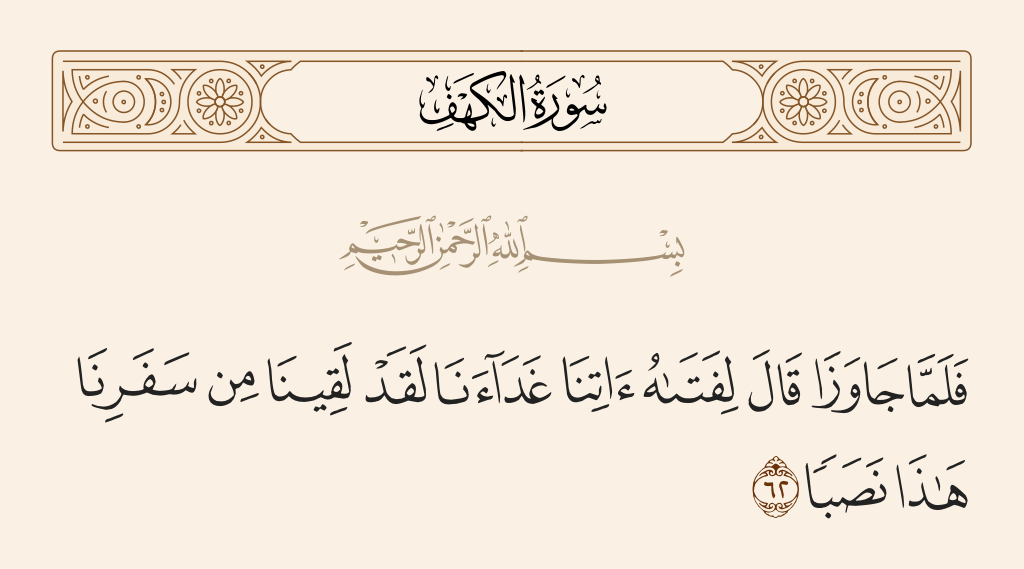 سُورَةُ الكَهْفِ
بِسْمِ ٱللَّهِ ٱلرَّحْمَٰنِ ٱلرَّحِيمِ
فَلَمَّا جَاوَزَا قَالَ لِفَتَىٰهُ ءَاتِنَا غَدَآءَنَا لَقَدْ لَقِينَا مِن سَفَرِنَا
هَٰذَا نَصَبًا ٦٢